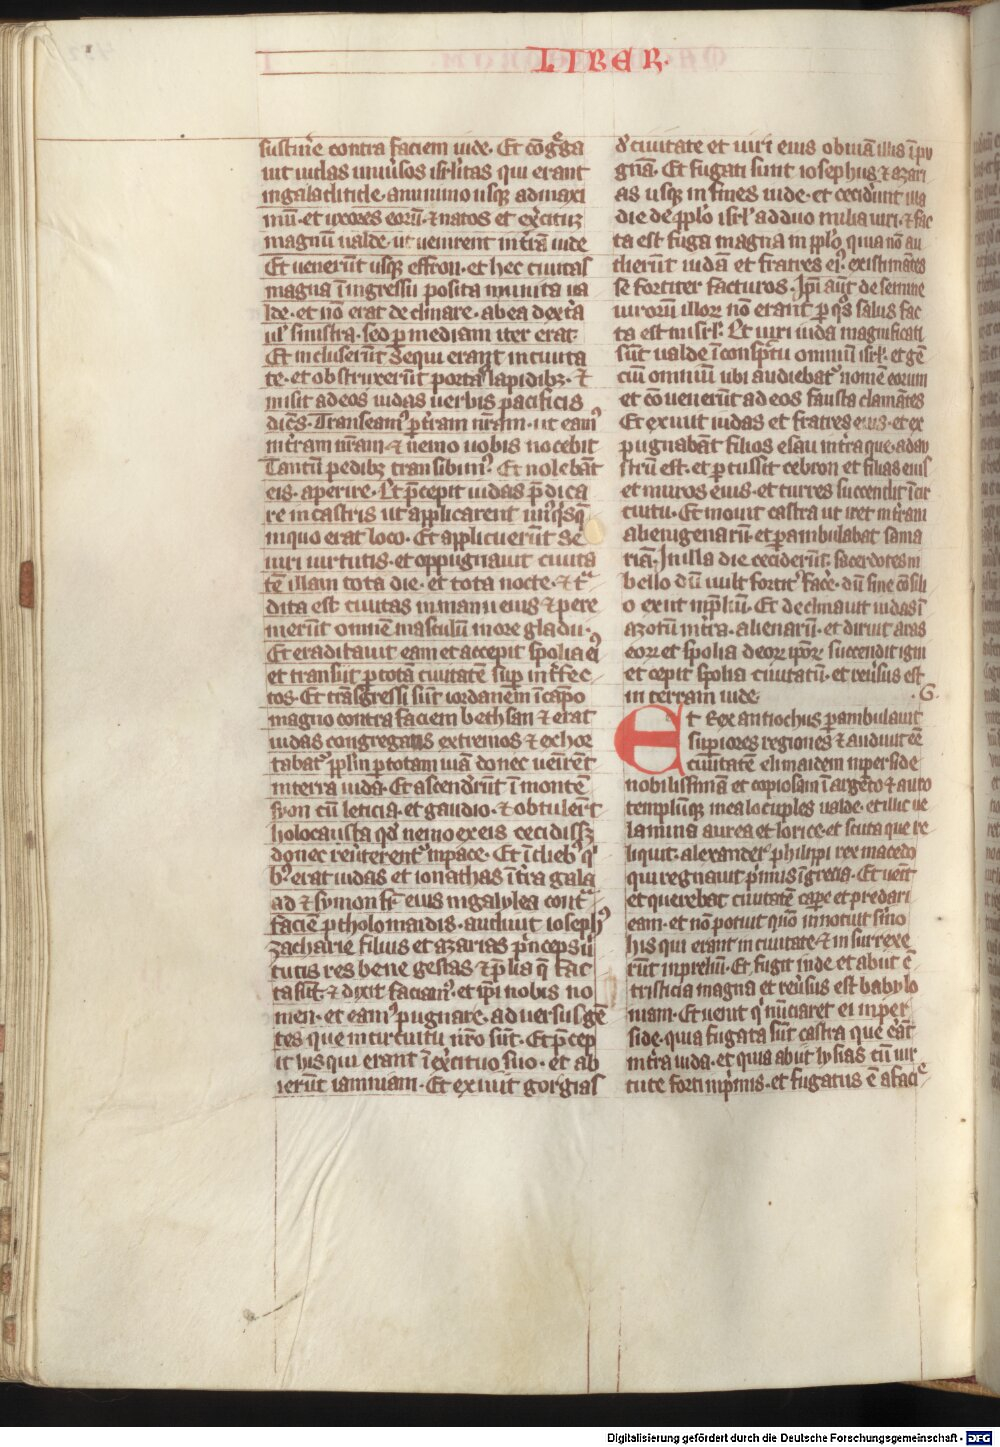 LIBER.
sustinere contra faciem iude. Et cōgͣga
uit iudas uniūsos isrl'itas qui erant
in galaditide. a minimo usqꝫ ad maxi
mū. et uxores eorū. ⁊ natos et exͤcituꝫ
magnū ualde. ut uenirent in tͣrā iude
Et uenerūt usqꝫ effron. et hec ciuitas
magna ī ingressu posita munita ua
lde. et nō erat declinare. ab ea dextͣa
ul' sinistra. sed ꝑ mediam iter erat.
Et incluserūt se qui erant in ciuita
te. et obstruxerūt portas lapidibꝫ. ⁊
misit ad eos iudas uerbis pacificis
dicēs. Transeamꝰ ꝑ tͣram urām. ut eamꝰ
in tͣram nrām. ⁊ nemo uobis nocebit
Tantū pedibꝫ transibimꝰ. Et nolebāt
eis. aperire. Et p̄cepit iudas p̄dica
re in castris ut applicarent unꝰqͥsqꝫ
in quo erat loco. Et applicuerūt se
uiri uirtutis. et oppugnauit ciuita
tē illam tota die. et tota nocte. ⁊ tͣ
dita est ciuitas in manu eius ⁊ pere
merūt omnē masculū in ore gladii.
Et eradicauit eam et accepit spolia eiꝰ
et transiit ꝑ totā ciuitatē suꝑ int̄fec
tos. Et trāsgressi sunt iordanem ī cāpo
magno contra faciem bethsan ⁊ erat
iudas congregans extremos ⁊ exhor
tabatᷣ ppl'm ꝑ totam uiā donec uenirēt
in terra iuda. Et ascendͤrūt ī montē
syon cū leticia. et gaudio. ⁊ obtulerͤt
holocausta qd' nemo ex eis cecidissꝫ
donec reūterentᷣ in pace. Et ī diebꝰ qͥ
bꝰ erat iudas et ionathas ī tͣra gala
ad ⁊ symon fr̄ eius in galylea contͣ
faciē ptholomaidis. audiuit iosephꝰ
zacharie filius et azarias pͥnceps ū
tutis res bene gestas ⁊ p̄lia q̄ fac
ta sūt. ⁊ dixit faciamꝰ. et ip̄i nobis no
men. et eamꝰ pugnare. aduersus gē
tes que in circuitu nr̄o sūt. Et p̄cep
it his qui erant ī exͤcitu suo. et ab
ierūt iamniam. Et exiuit gorgias
d' ciuitate et uiri eius obuiā illis ī pu
gnā. Et fugati sunt iosephus ⁊ azari
as usqꝫ in fines iude. et cecidͤunt illa
die de ppl'o isrl' ad duo milia uiri. ⁊ fac
ta est fuga magna in ppl'o, quia nō au
dierūt iudā et fratres eiꝰ. existimātes
se fortiter facturos. Ip̄i aūt de semine
uirorū illorꝝ nō erant ꝑ qͦs salus fac
ta est in isrl'. Et uiri iuda magnificati
sūt ualde ī conspc̄tu omniū isrl'. et gē
ciū omniū ubi audiebatᷣ nomē eorum
et cōuenerūt ad eos fausta clamātes
Et exiuit iudas et fratres eius. et ex
pugnabāt filios esau in tͣra que. ad au
strū est. et ꝑcussit cebron et filias eius
et muros eius. et turres succendit ī cir
cuitu. Et mouit castra ut iret in tͣram
alienigenarū. et ꝑambulabat sama
riā. In illa die ceciderūt. sacerdotes in
bello dū uult fortitͤ facͤe. dū sine cōsili
o exiit in p̄liū. Et declinauit iudas ī
azotū in tͣra. alienarū. et diruit aras
eorꝝ et spolia deorꝝ ip̄orꝝ succendit igni
et cepit spolia ciuitatū. et reūsus est
in terram iude. .G.
Et Rex antiochus ꝑambulauit
suꝑiores regiones ⁊ audiuit eē
ciuitatē elimaidem in perside
nobilissimā et copiosam ī argēto ⁊ auro
templūqꝫ in ea locuples ualde. et illic ue
lamina aurea et lorice. et scuta que re
liquit. alexanderͤ philippi rex macedo
qui regnauit pͥmus ī grecia. Et uenit
et querebat ciuitatē caꝑe et predari
eam. et nō potuit quō innotuit sermo
his qui erant in ciuitate. ⁊ insurrexe
rūt in preliū. Et fugit inde. et abiit c̄
tristicia magna et reūsus est babylo
niam. Et uenit qͥ nūciaret ei in per
side. quia fugata sūt castra que erāt
in tͣra iuda. et quia abiit lysias cū uir
tute forti in pͥmis. et fugatus ē a facie
Digitalisierung gefördert durch die Deutsche Forschungsgemeinschaft - DFG